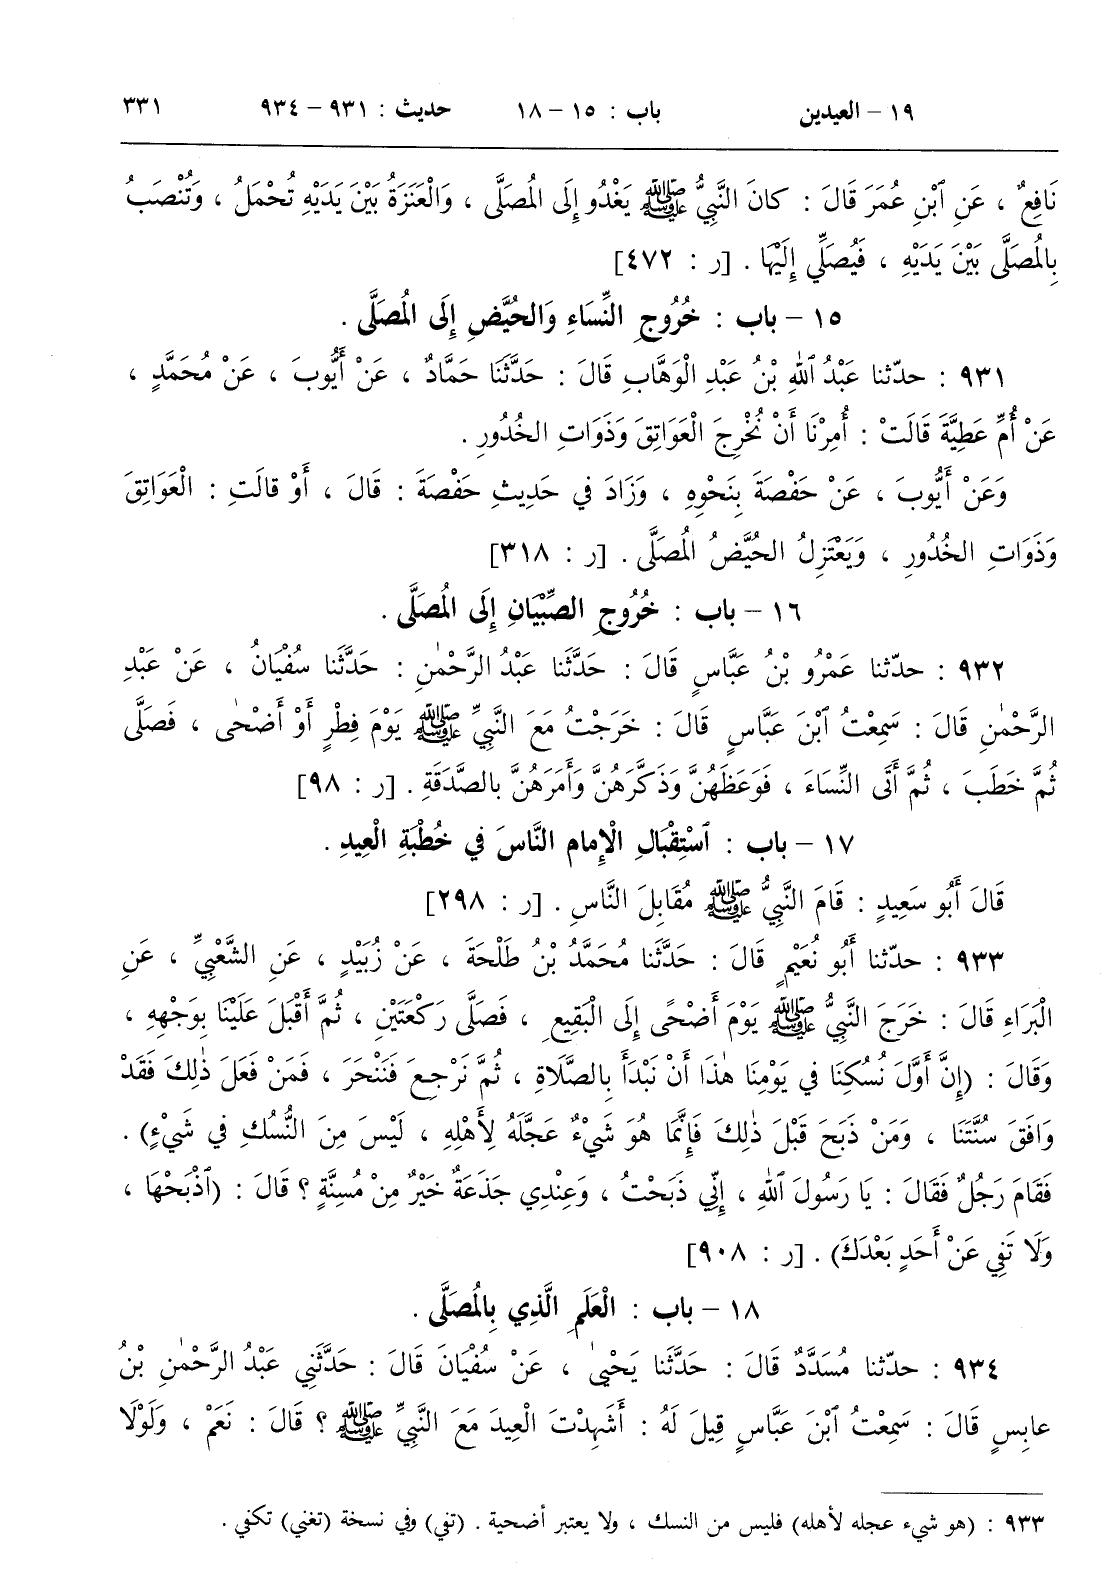 ١٩ – العيدين باب : ١٥ – ١٨ حديث : ٩٣١ – ٩٣٤ ٣٣١
نَافِعٌ ، عَنِ ٱبْنِ عُمَرَ قَالَ : كانَ النَّبِيُّ ﷺ يَغْدُو إِلَى المُصَلَّى ، وَالْعَنَزَةُ بَيْنَ يَدَيْهِ تُحْمَلُ ، وَتُنْصَبُ
بِالمُصَلَّى بَيْنَ يَدَيْهِ ، فَيُصَلِّي إِلَيْهَا . [ر : ٤٧٢]
١٥ – باب : خُرُوجِ النِّسَاءِ وَالحُيَّضِ إِلَى المُصَلَّى .
٩٣١ : حدّثنا عَبْدُ ٱللهِ بْنُ عَبْدِ الْوَهَّابِ قَالَ : حَدَّثَنَا حَمَّادٌ ، عَنْ أَيُّوبَ ، عَنْ مُحَمَّدٍ ،
عَنْ أُمِّ عَطِيَّةَ قَالَتْ : أُمِرْنَا أَنْ نُخْرِجَ الْعَوَاتِقَ وَذَوَاتِ الخُدُورِ .
وَعَنْ أَيُّوبَ ، عَنْ حَفْصَةَ بِنَحْوِهِ ، وَزَادَ في حَدِيثِ حَفْصَةَ : قَالَ ، أَوْ قالَتِ : الْعَوَاتِقَ
وَذَوَاتِ الخُدُورِ ، وَيَعْتَزِلُ الحُيَّضُ المُصَلَّى . [ر : ٣١٨]
١٦ – باب : خُرُوجِ الصِّبْيَانِ إِلَى المُصَلَّى .
٩٣٢ : حدّثنا عَمْرُو بْنُ عَبَّاسٍ قَالَ : حَدَّثَنَا عَبْدُ الرَّحْمٰنِ : حَدَّثَنَا سُفْيَانُ ، عَنْ عَبْدِ
الرَّحْمٰنِ قَالَ : سَمِعْتُ ٱبْنَ عَبَّاسٍ قَالَ : خَرَجْتُ مَعَ النَّبِيِّ ﷺ يَوْمَ فِطْرٍ أَوْ أَضْحٰى ، فَصَلَّى
ثُمَّ خَطَبَ ، ثُمَّ أَتَى النِّسَاءَ ، فَوَعَظَهُنَّ وَذَكَّرَهُنَّ وَأَمَرَهُنَّ بِالصَّدَقَةِ . [ر : ٩٨]
١٧ – باب : ٱسْتِقْبَالِ الْإِمامِ النَّاسَ في خُطْبَةِ الْعِيدِ .
قَالَ أَبُو سَعِيدٍ : قَامَ النَّبِيُّ ﷺ مُقَابِلَ النَّاسِ . [ر : ٢٩٨]
٩٣٣ : حدّثنا أَبُو نُعَيْمٍ قَالَ : حَدَّثَنَا مُحَمَّدُ بْنُ طَلْحَةَ ، عَنْ زُبَيْدٍ ، عَنِ الشَّعْبِيِّ ، عَنِ
الْبَرَاءِ قَالَ : خَرَجَ النَّبِيُّ ﷺ يَوْمَ أَضْحًى إِلَى الْبَقِيعِ ، فَصَلَّى رَكْعَتَيْنِ ، ثُمَّ أَقْبَلَ عَلَيْنَا بِوَجْهِهِ ،
وَقَالَ : (إِنَّ أَوَّلَ نُسُكِنَا في يَوْمِنَا هٰذَا أَنْ نَبْدَأَ بِالصَّلَاةِ ، ثُمَّ نَرْجِعَ فَنَنْحَرَ ، فَمَنْ فَعَلَ ذٰلِكَ فَقَدْ
وَافَقَ سُنَّتَنَا ، وَمَنْ ذَبَحَ قَبْلَ ذٰلِكَ فَإِنَّمَا هُوَ شَيْءٌ عَجَّلَهُ لِأَهْلِهِ ، لَيْسَ مِنَ النُّسُكِ في شَيْءٍ) .
فَقَامَ رَجُلٌ فَقَالَ : يَا رَسُولَ ٱللهِ ، إِنِّي ذَبَحْتُ ، وَعِنْدِي جَذَعَةٌ خَيْرٌ مِنْ مُسِنَّةٍ ؟ قَالَ : (ٱذْبَحْهَا ،
وَلَا تَفِي عَنْ أَحَدٍ بَعْدَكَ) . [ر : ٩٠٨]
١٨ – باب : الْعَلَمِ الَّذِي بِالمُصَلَّى .
٩٣٤ : حدّثنا مُسَدَّدٌ قَالَ : حَدَّثَنَا يَحْيىٰ ، عَنْ سُفْيَانَ قَالَ : حَدَّثَنِي عَبْدُ الرَّحْمٰنِ بْنُ
عابِسٍ قَالَ : سَمِعْتُ ٱبْنَ عَبَّاسٍ قِيلَ لَهُ : أَشَهِدْتَ الْعِيدَ مَعَ النَّبِيِّ ﷺ ؟ قَالَ : نَعَمْ ، وَلَوْلَا
٩٣٣ : (هو شيء عجله لأهله) فليس من النسك ، ولا يعتبر أضحية . (تفي) وفي نسخة (تغني) تكفي .